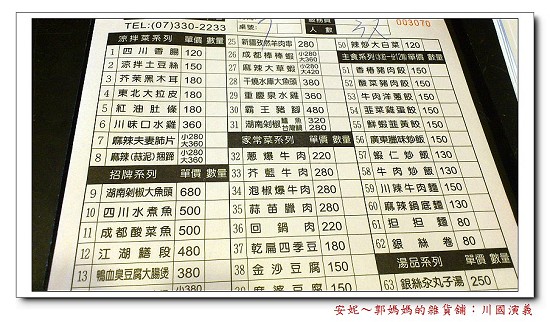 TEL:(07)330-2233
桌號:
服務員
人 數
003070
涼拌菜系列 單價 數量
1 四川香腸 120
2 涼拌土豆絲 150
3 芥茉黑木耳 180
4 東北大拉皮 180
5 紅油肚條 180
6 川味口水雞 360
7 麻辣夫妻肺片 小280 大360
8 麻辣(蒜泥)捆蹄 小280 大360
招牌系列 單價 數量
9 湖南剁椒大魚頭 680
10 四川水煮魚 500
11 成都酸菜魚 500
12 江湖鱔段 480
13 鴨血臭豆腐大腸煲 380
25 新疆孜然羊肉串 280
26 成都棒棒雞 小280 大360
27 麻辣大草蝦 小280 大420
28 干燒水庫大魚頭 380
29 重慶泉水雞 360
30 霸王豬腳 480
31 湖南剁椒 鱸魚 320 台灣鯛 280
家常菜系列 單價 數量
32 蔥爆牛肉 220
33 芥藍牛肉 180
34 泡椒爆牛肉 280
35 蒜苗臘肉 280
36 回鍋肉 220
37 乾扁四季豆 180
38 金沙豆腐 150
麻婆豆腐 150
50 辣炒大白菜 120
主食系列 單價 數量
51 香椿豬肉餃 150
52 酸菜豬肉餃 150
53 牛肉洋蔥餃 150
54 韭菜雞蛋餃 150
55 鮮蝦韭黃餃 150
56 廣東臘味炒飯 150
57 蝦仁炒飯 130
58 牛肉炒飯 130
59 川辣牛肉麵 150
60 麻辣鍋底麵 130
61 担担麵 80
62 銀絲卷 80
湯品系列 單價 數量
63 銀絲汆丸子湯 250
安妮~郭媽媽的雜貨舖:川國演義